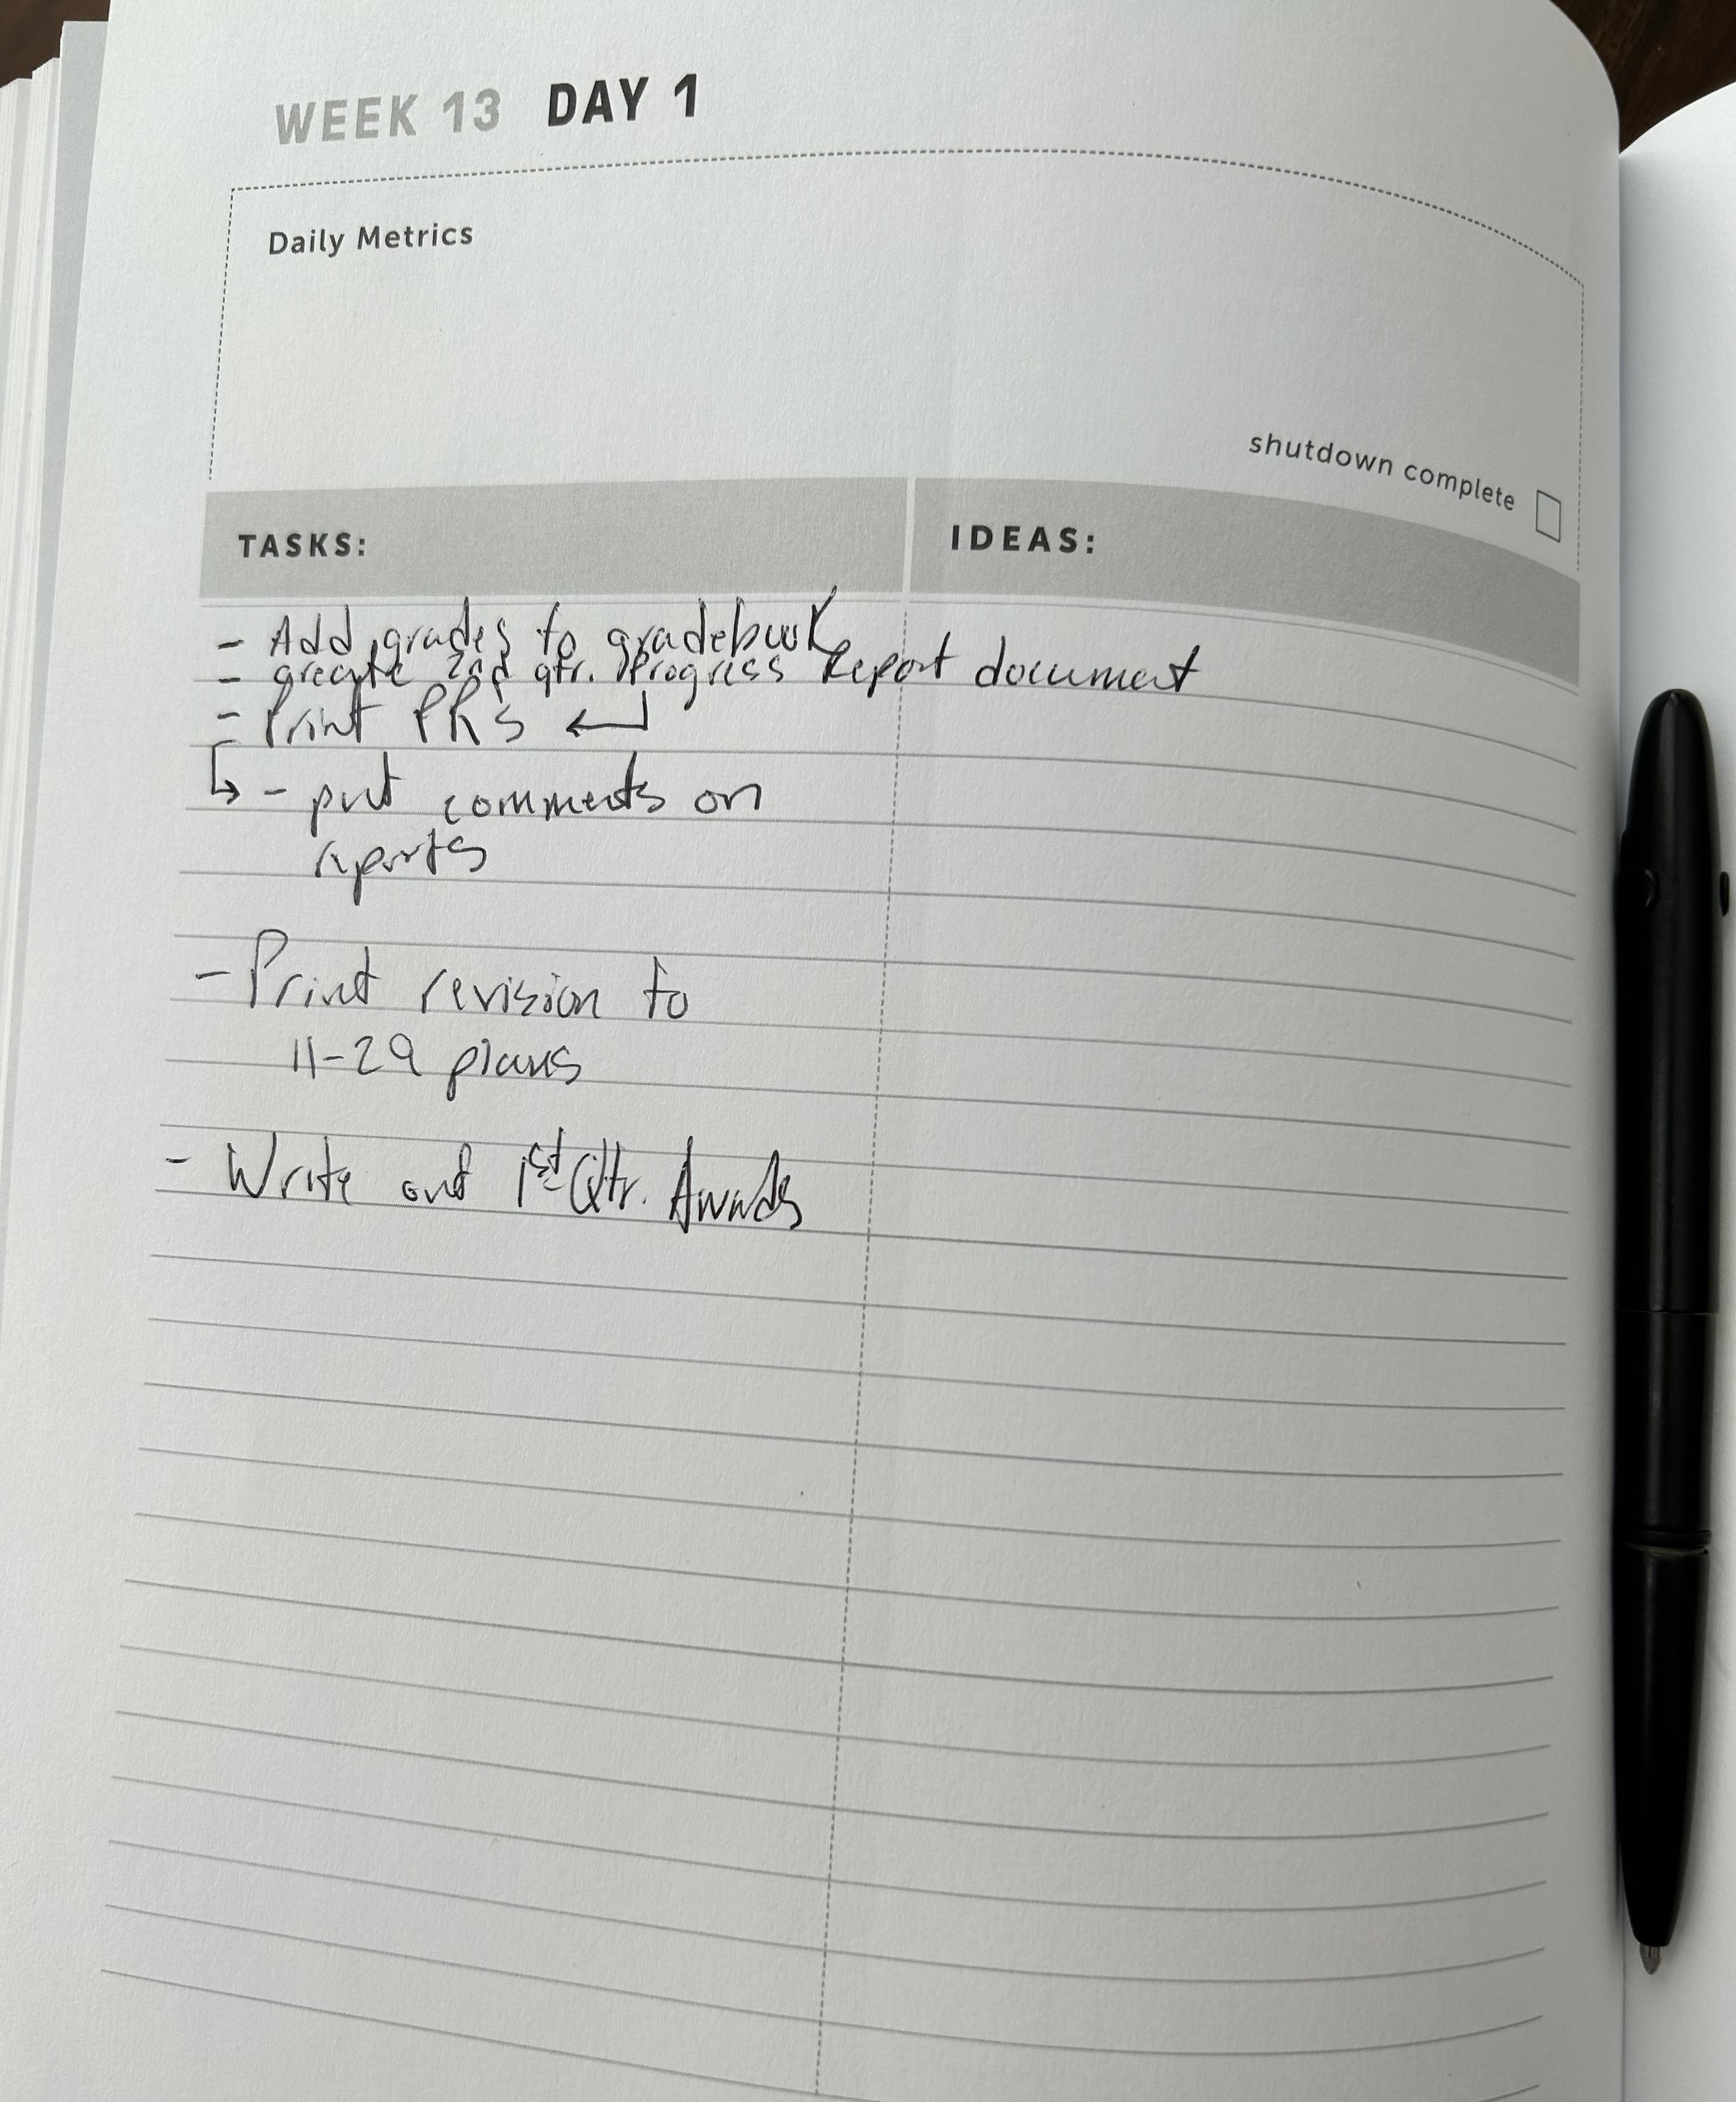 WEEK 13 DAY 1
Daily Metrics
shutdown complete
TASKS: IDEAS:
- Add grades to gradebook
- create 2nd qtr. Progress Report document
- Print PRs
- put comments on
reports
- Print revision to
11-29 plans
- Write out 1st Qtr. Awards